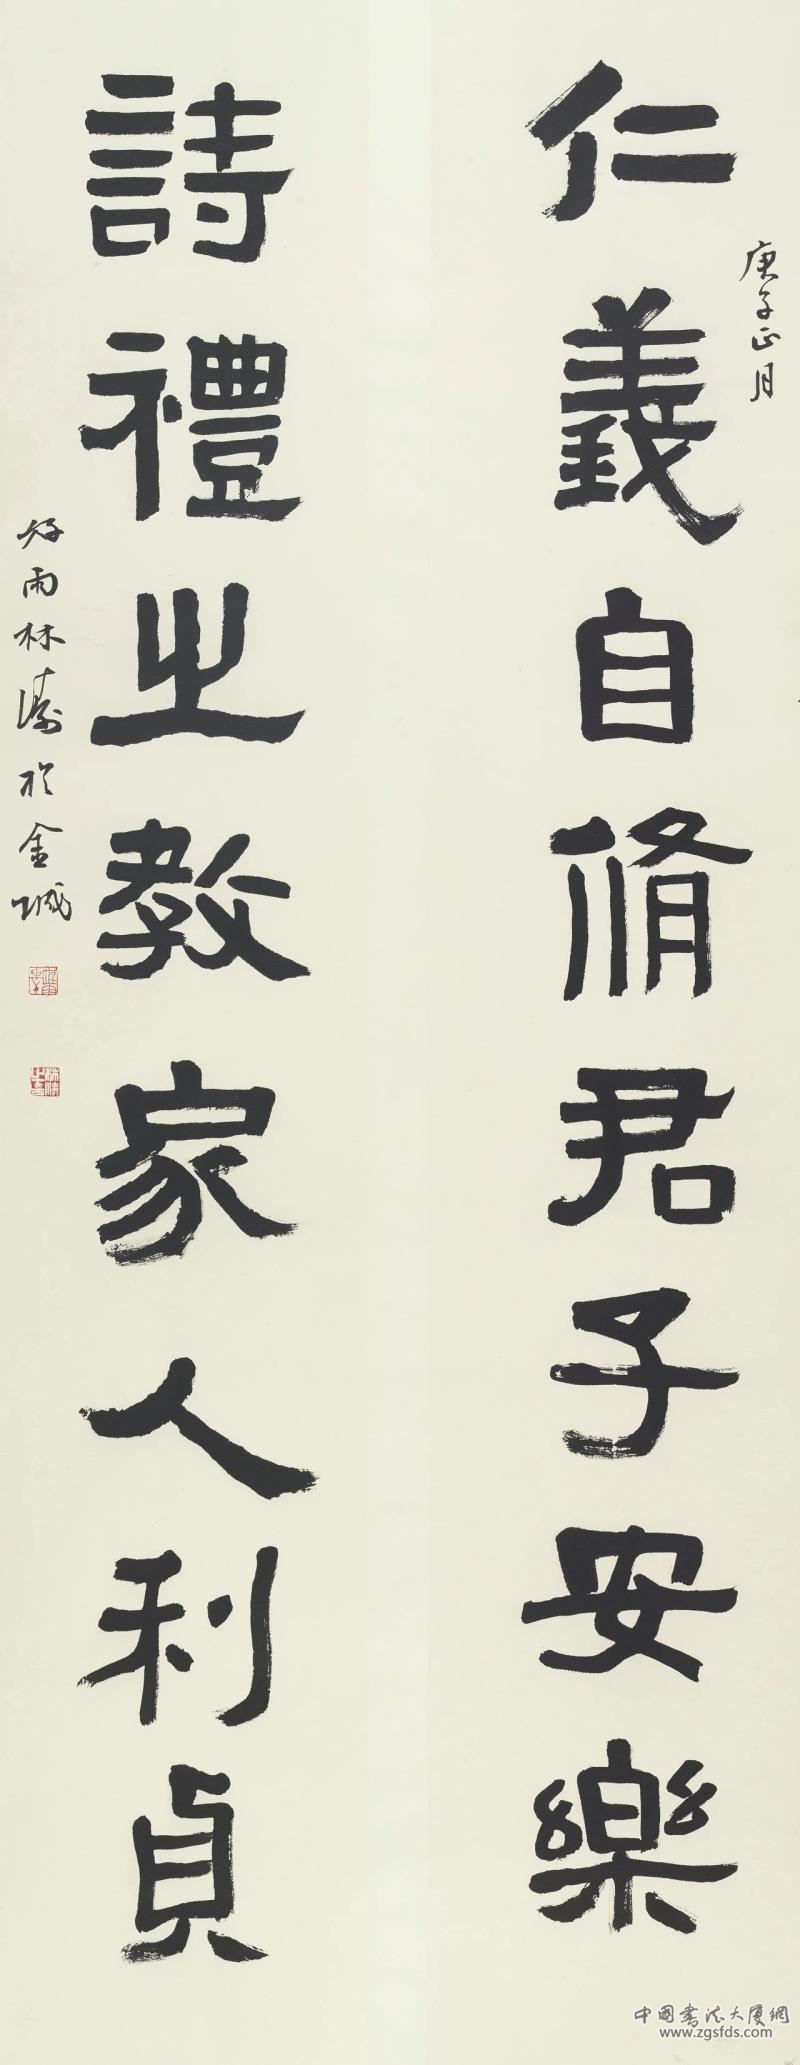 仁義自脩君子安樂
庚子正月
詩禮之教家人利貞
好雨林濤於金城
中國書法大厦網
www.zgsfds.com